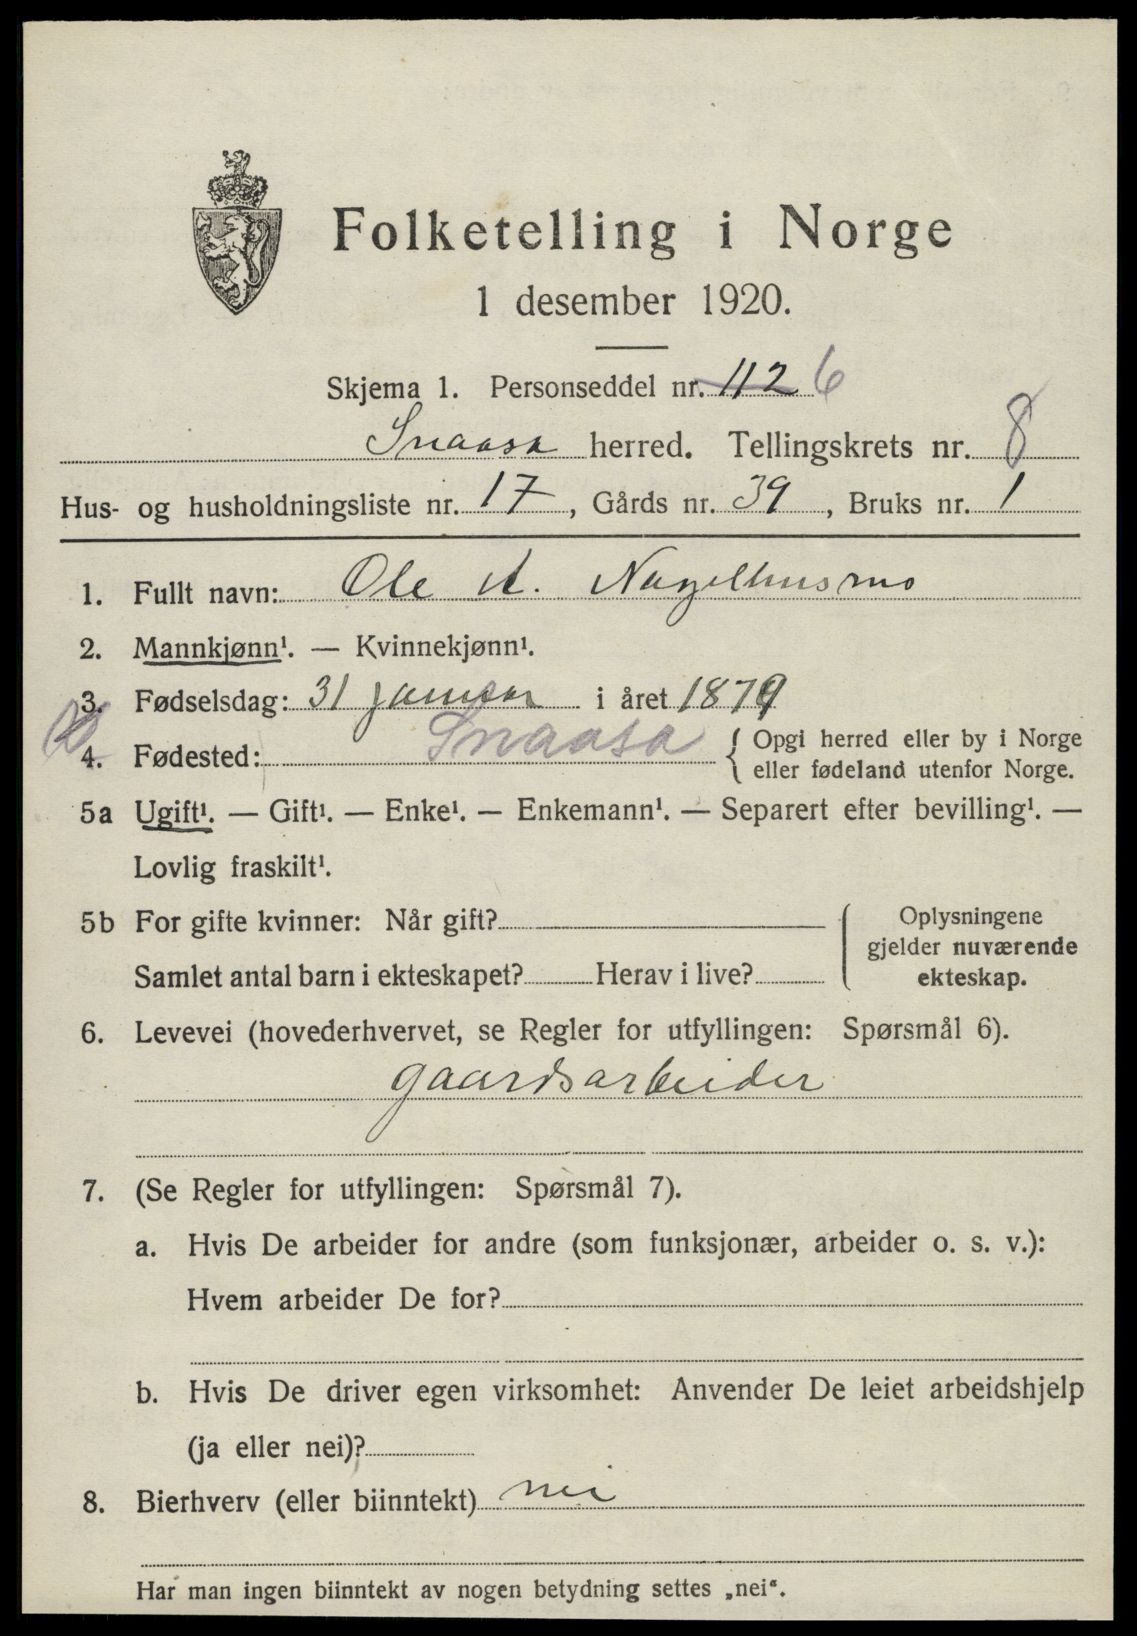 Folketelling i Norge
1 desember 1920.
Skjema 1. Personseddel nr. 112 6
Snaasa herred. Tellingskrets nr. 8
Hus- og husholdningsliste nr. 17, Gårds nr. 39, Bruks nr. 1
1. Fullt navn: Ole A. Nagelhusmo
2. Mannkjønn¹. — Kvinnekjønn¹.
3. Fødselsdag: 31 januar i året 1879
4. Fødested: Snaasa { Opgi herred eller by i Norge
eller fødeland utenfor Norge.
5a Ugift¹. — Gift¹. — Enke¹. — Enkemann¹. — Separert efter bevilling¹. —
Lovlig fraskilt¹.
5b For gifte kvinner: Når gift?
Samlet antal barn i ekteskapet? Herav i live?
Oplysningene
gjelder nuværende
ekteskap.
6. Levevei (hovederhvervet, se Regler for utfyllingen: Spørsmål 6).
gaardsarbeider
7. (Se Regler for utfyllingen: Spørsmål 7).
a. Hvis De arbeider for andre (som funksjonær, arbeider o. s. v.):
Hvem arbeider De for?
b. Hvis De driver egen virksomhet: Anvender De leiet arbeidshjelp
(ja eller nei)?
8. Bierhverv (eller biinntekt) nei
Har man ingen biinntekt av nogen betydning settes „nei“.